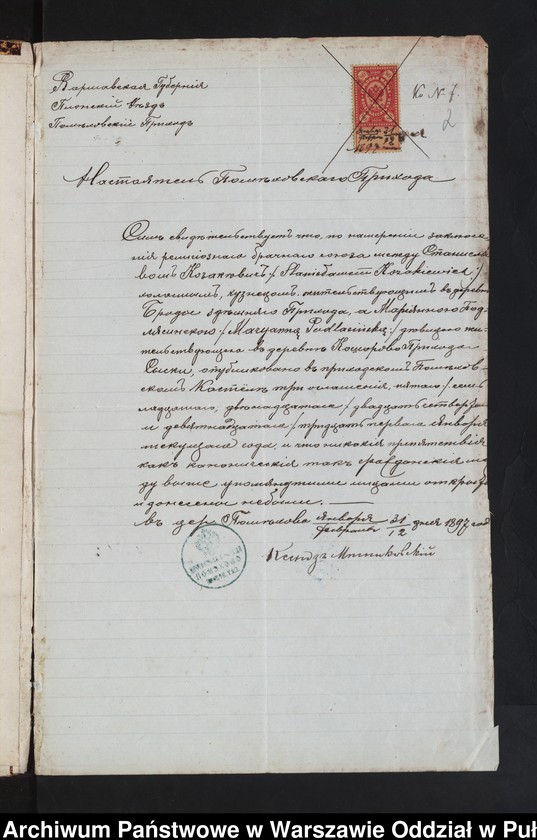 Варшавская Губернія
Плонскій Уѣздъ
Помѣховскій Приходъ
Къ N. 7
2
Настоятель Помѣховскаго Прихода
Симъ свидѣтельствуетъ что, по намеренію заключе
нія религіознаго брачнаго союза между Станисла
вомъ Козакевичъ / Stanisławem Kozakiewicz /
холостымъ, кузнецомъ жительствующимъ въ деревнѣ
Бродое здѣшняго Прихода, а Маріянною Под
лясинскою / Maryanną Podlasińską / дѣвицею жи
тельствующею въ деревнѣ Прихода
опубликовано въ приходскомъ Помѣхов
скомъ Костёлѣ три оглашенія, пятаго / сем
надцатаго, двенадцатаго / двадцать четвертаго
и девятнадцатаго / тридцать перваго Января
текущаго года, и что никакія препятствія
какъ каноническія такъ гражданскія ме
жду выше упомянутыми лицами открыты
и донесены небыли.
въ дер. Помѣхово Января 31 / Февраля 12 дня 1897 года
Ксендзъ
Archiwum Państwowe w Warszawie Oddział w Puł